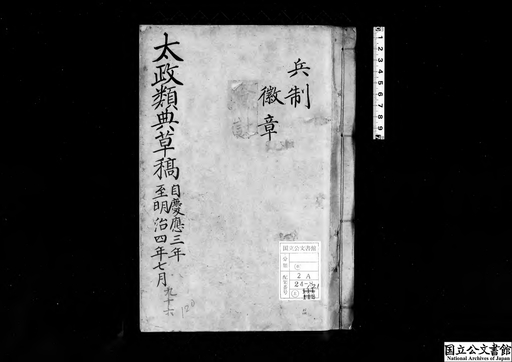 兵制
徽章
太政類典草稿
自慶應三年
至明治四年七月
九十六
国立公文書館
分類
配架番号
2A
24-8
1 2 3 4 5 6 7 8 9
国立公文書館
National Archives of Japan